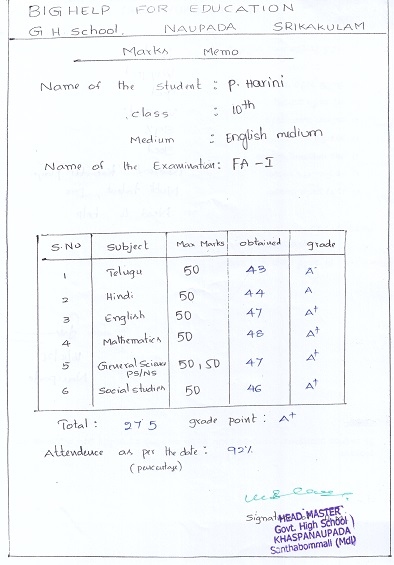 BIG HELP FOR EDUCATION
G H School, NAUPADA SRIKAKULAM
Marks Memo
Name of the student : P. Harini
class : 10th
Medium : English medium
Name of the Examination: FA-I
S.NO Subject Max Marks obtained grade
1 Telugu 50 43 A
2 Hindi 50 44 A
3 English 50 47 A+
4 Mathematics 50 48 A+
5 General Science PS/NS 50,50 47 A+
6 Social studies 50 46 A+
Total : 275 grade point : A+
Attendence as per the date : 92%
(percentage)
HEAD MASTER
Govt. High School
KHASPANAUPADA
Santhabommali (Mdl)